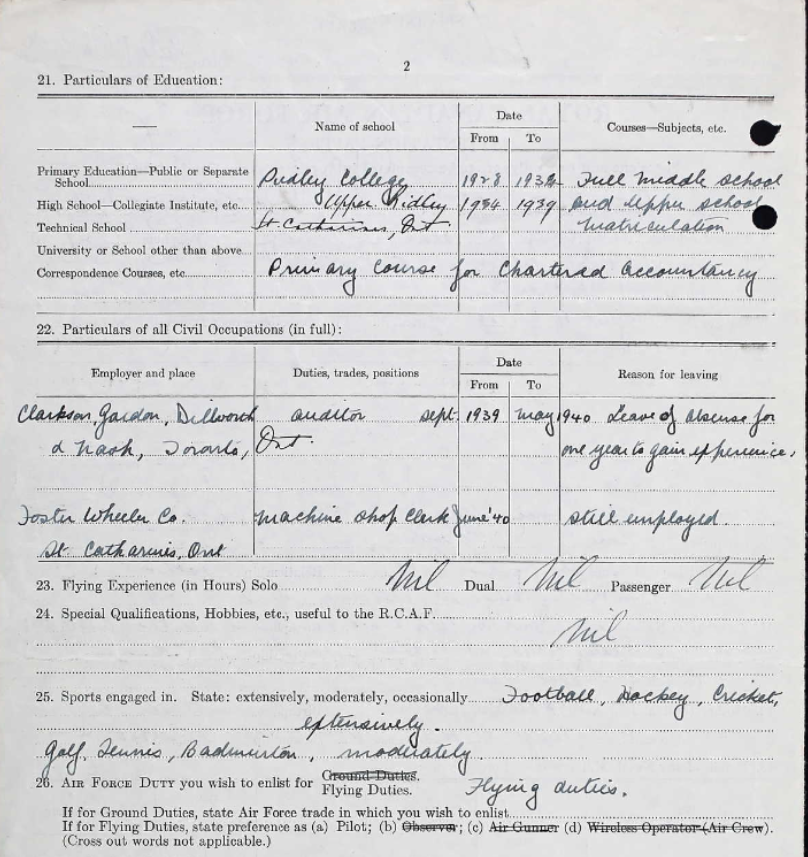 2
21. Particulars of Education:
— Name of school Date Courses—Subjects, etc.
From To
Primary Education—Public or Separate
School Ridley College 1928 1934 Full Middle School
High School—Collegiate Institute, etc. Upper Ridley 1934 1939 and Upper School
Technical School St. Catharines, Ont. Matriculation
University or School other than above
Correspondence Courses, etc. Primary Course for Chartered Accountancy
22. Particulars of all Civil Occupations (in full):
Employer and place Duties, trades, positions Date Reason for leaving
From To
Clarkson, Gordon, Dillworth auditor Sept. 1939 May 1940 Leave of absense for
& Nash, Toronto, Ont. one year to gain experience.
Foster Wheeler Co. Machine Shop Clerk June '40 still employed.
St. Catharines, Ont
23. Flying Experience (in Hours) Solo Nil Dual Nil Passenger Nil
24. Special Qualifications, Hobbies, etc., useful to the R.C.A.F.
Nil
25. Sports engaged in. State: extensively, moderately, occasionally Football, Hockey, Cricket,
extensively.
Golf, Tennis, Badminton, moderately
26. AIR FORCE DUTY you wish to enlist for Ground Duties.
Flying Duties. Flying duties.
If for Ground Duties, state Air Force trade in which you wish to enlist
If for Flying Duties, state preference as (a) Pilot; (b) Observer; (c) Air Gunner (d) Wireless Operator (Air Crew).
(Cross out words not applicable.)